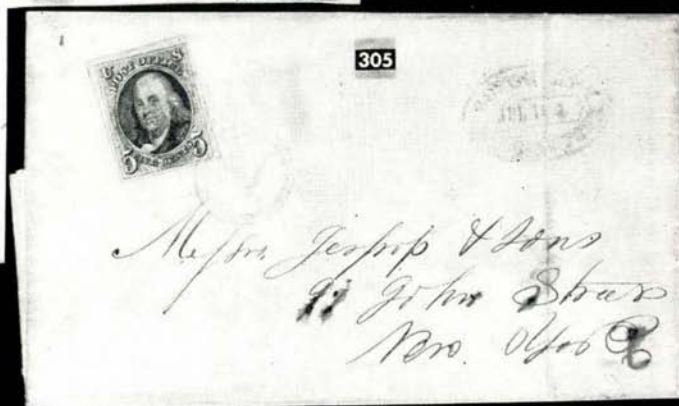 305
U S
POST OFFICE
5 FIVE CENTS 5
Messrs Jessop & Sons
91 John Street
New York